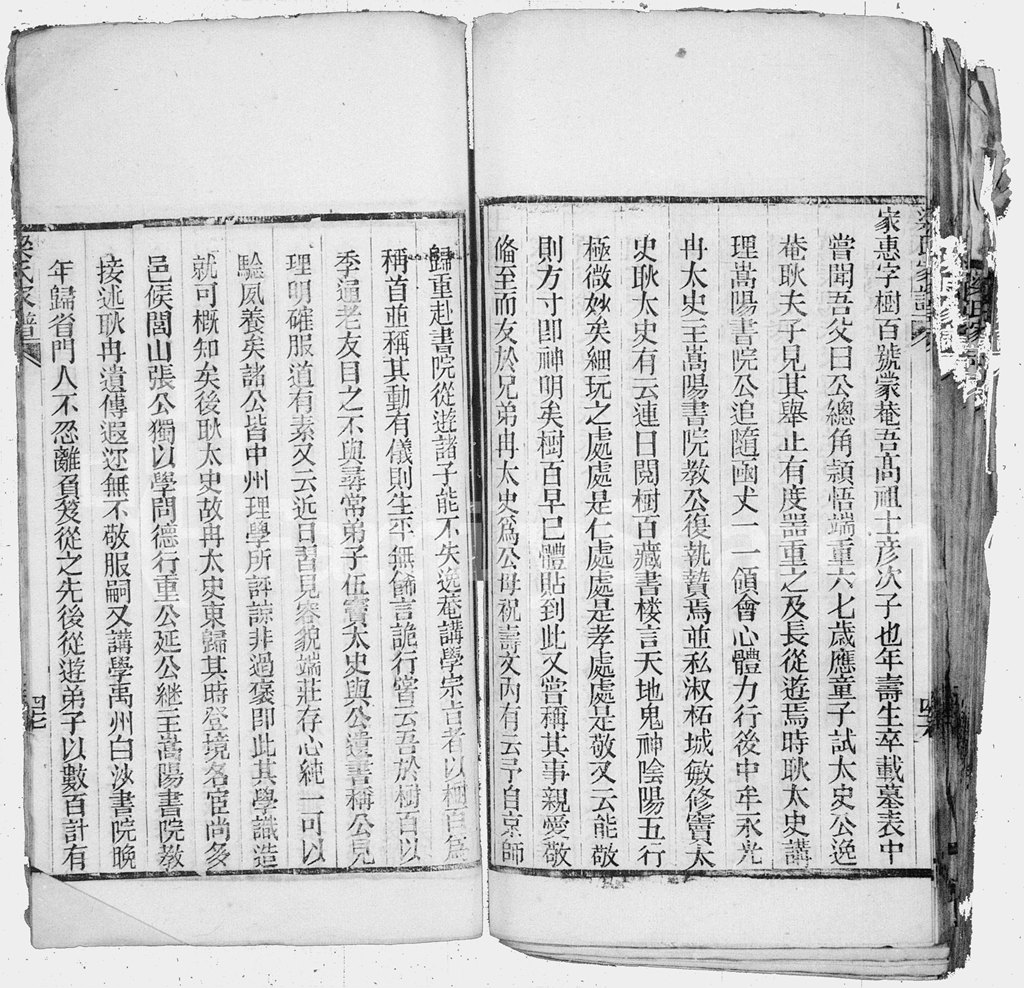 家惠字樹百號蒙菴吾高祖士彥次子也年壽生卒載墓表中
嘗聞吾父曰公總角頴悟端重六七歲應童子試太史公逸
菴耿夫子見其舉止有度噐重之及長從遊焉時耿太史講
理嵩陽書院公追隨函丈一一領會心體力行後中牟永光
冉太史主嵩陽書院教公復執贄焉並私淑柘城敏修竇太
史耿太史有云連日閱樹百藏書楼言天地鬼神陰陽五行
極微妙矣細玩之處處是仁處處是孝處處是敬又云能敬
則方寸卽神明矣樹百早已體貼到此又嘗稱其事親愛敬
俻至而友於兄弟冉太史爲公母祝壽文內有云予自京師
歸重赴書院從遊諸子能不失逸菴講學宗㫖者以樹百爲
稱首並稱其動有儀則生平無餙言詭行嘗云吾於樹百以
季通老友目之不與尋常弟子伍竇太史與公遺書稱公見
理明確服道有素又云近日習見容貌端莊存心純一可以
驗夙養矣諸公皆中州理學所評諒非過褒卽此其學識造
就可概知矣後耿太史故冉太史東歸其時登境名宦尚多
邑候閭山張公獨以學問德行重公延公継主嵩陽書院教
接述耿冉遺傳遐迩無不敬服嗣又講學禹州白沙書院晚
年歸省門人不忍離負笈從之先後從遊弟子以數百計有
梁氏家譜
四七